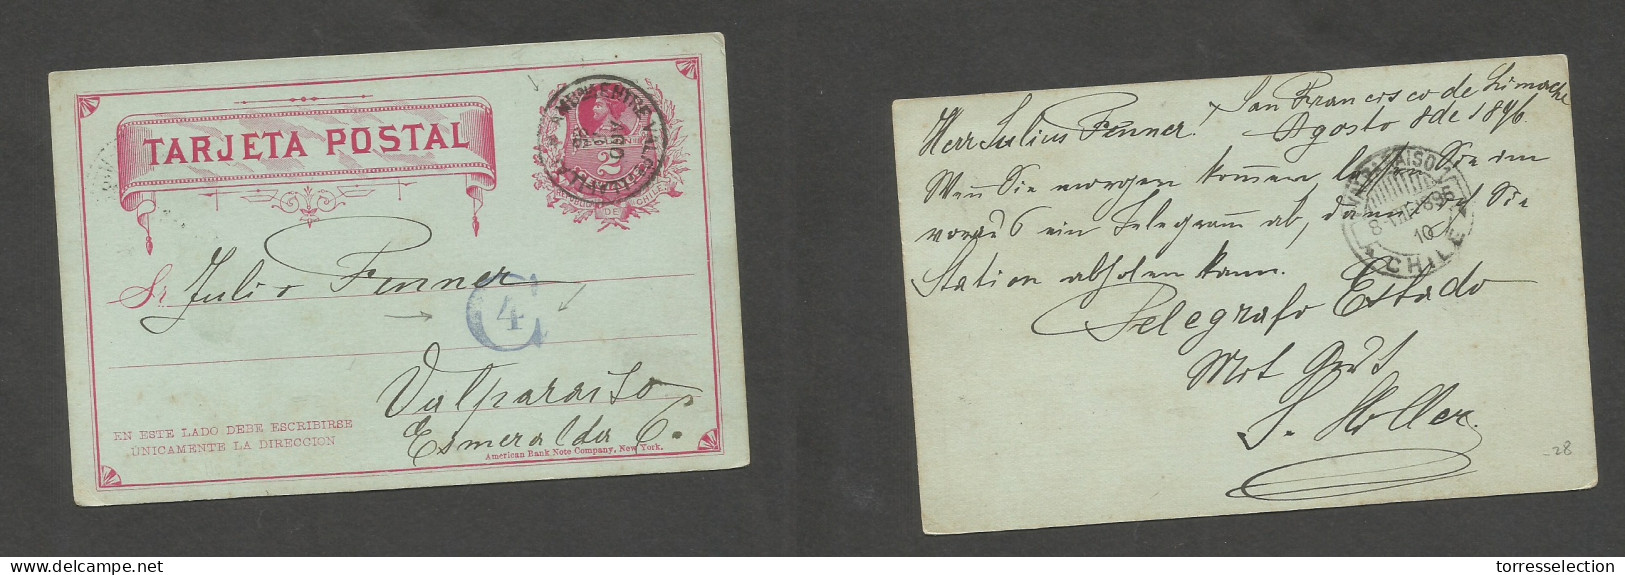 TARJETA POSTAL
2
REPUBLICA DE CHILE
AMBULANCIA ENTRE VALPO
AGO
Sr Julio Fenner
C4
Valparaiso
Esmeralda 6.
EN ESTE LADO DEBE ESCRIBIRSE
ÚNICAMENTE LA DIRECCION
American Bank Note Company, New York.
San Francisco de Limache
Agosto 8 de 1896.
Herr Julius Fenner!
Wenn Sie morgen kommen, Sie im
voraus ein Telegramm ab, dann ich Sie
Station abholen kann.
Telegrafo Estado
Mit Gruß
S. Holler.
VALPARAISO
10
CHILE
-28
torresselection